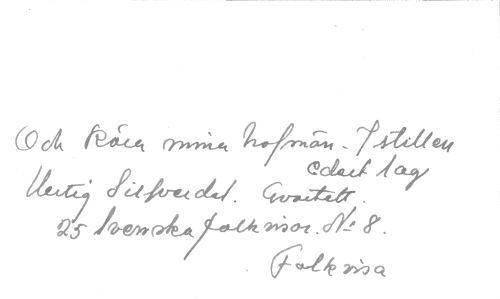 Och kära mina hofmän. I stillen
edert lag
Hertig Silfverdal. Qvartett.
25 Svenska folkvisor. No 8.
Folkvisa